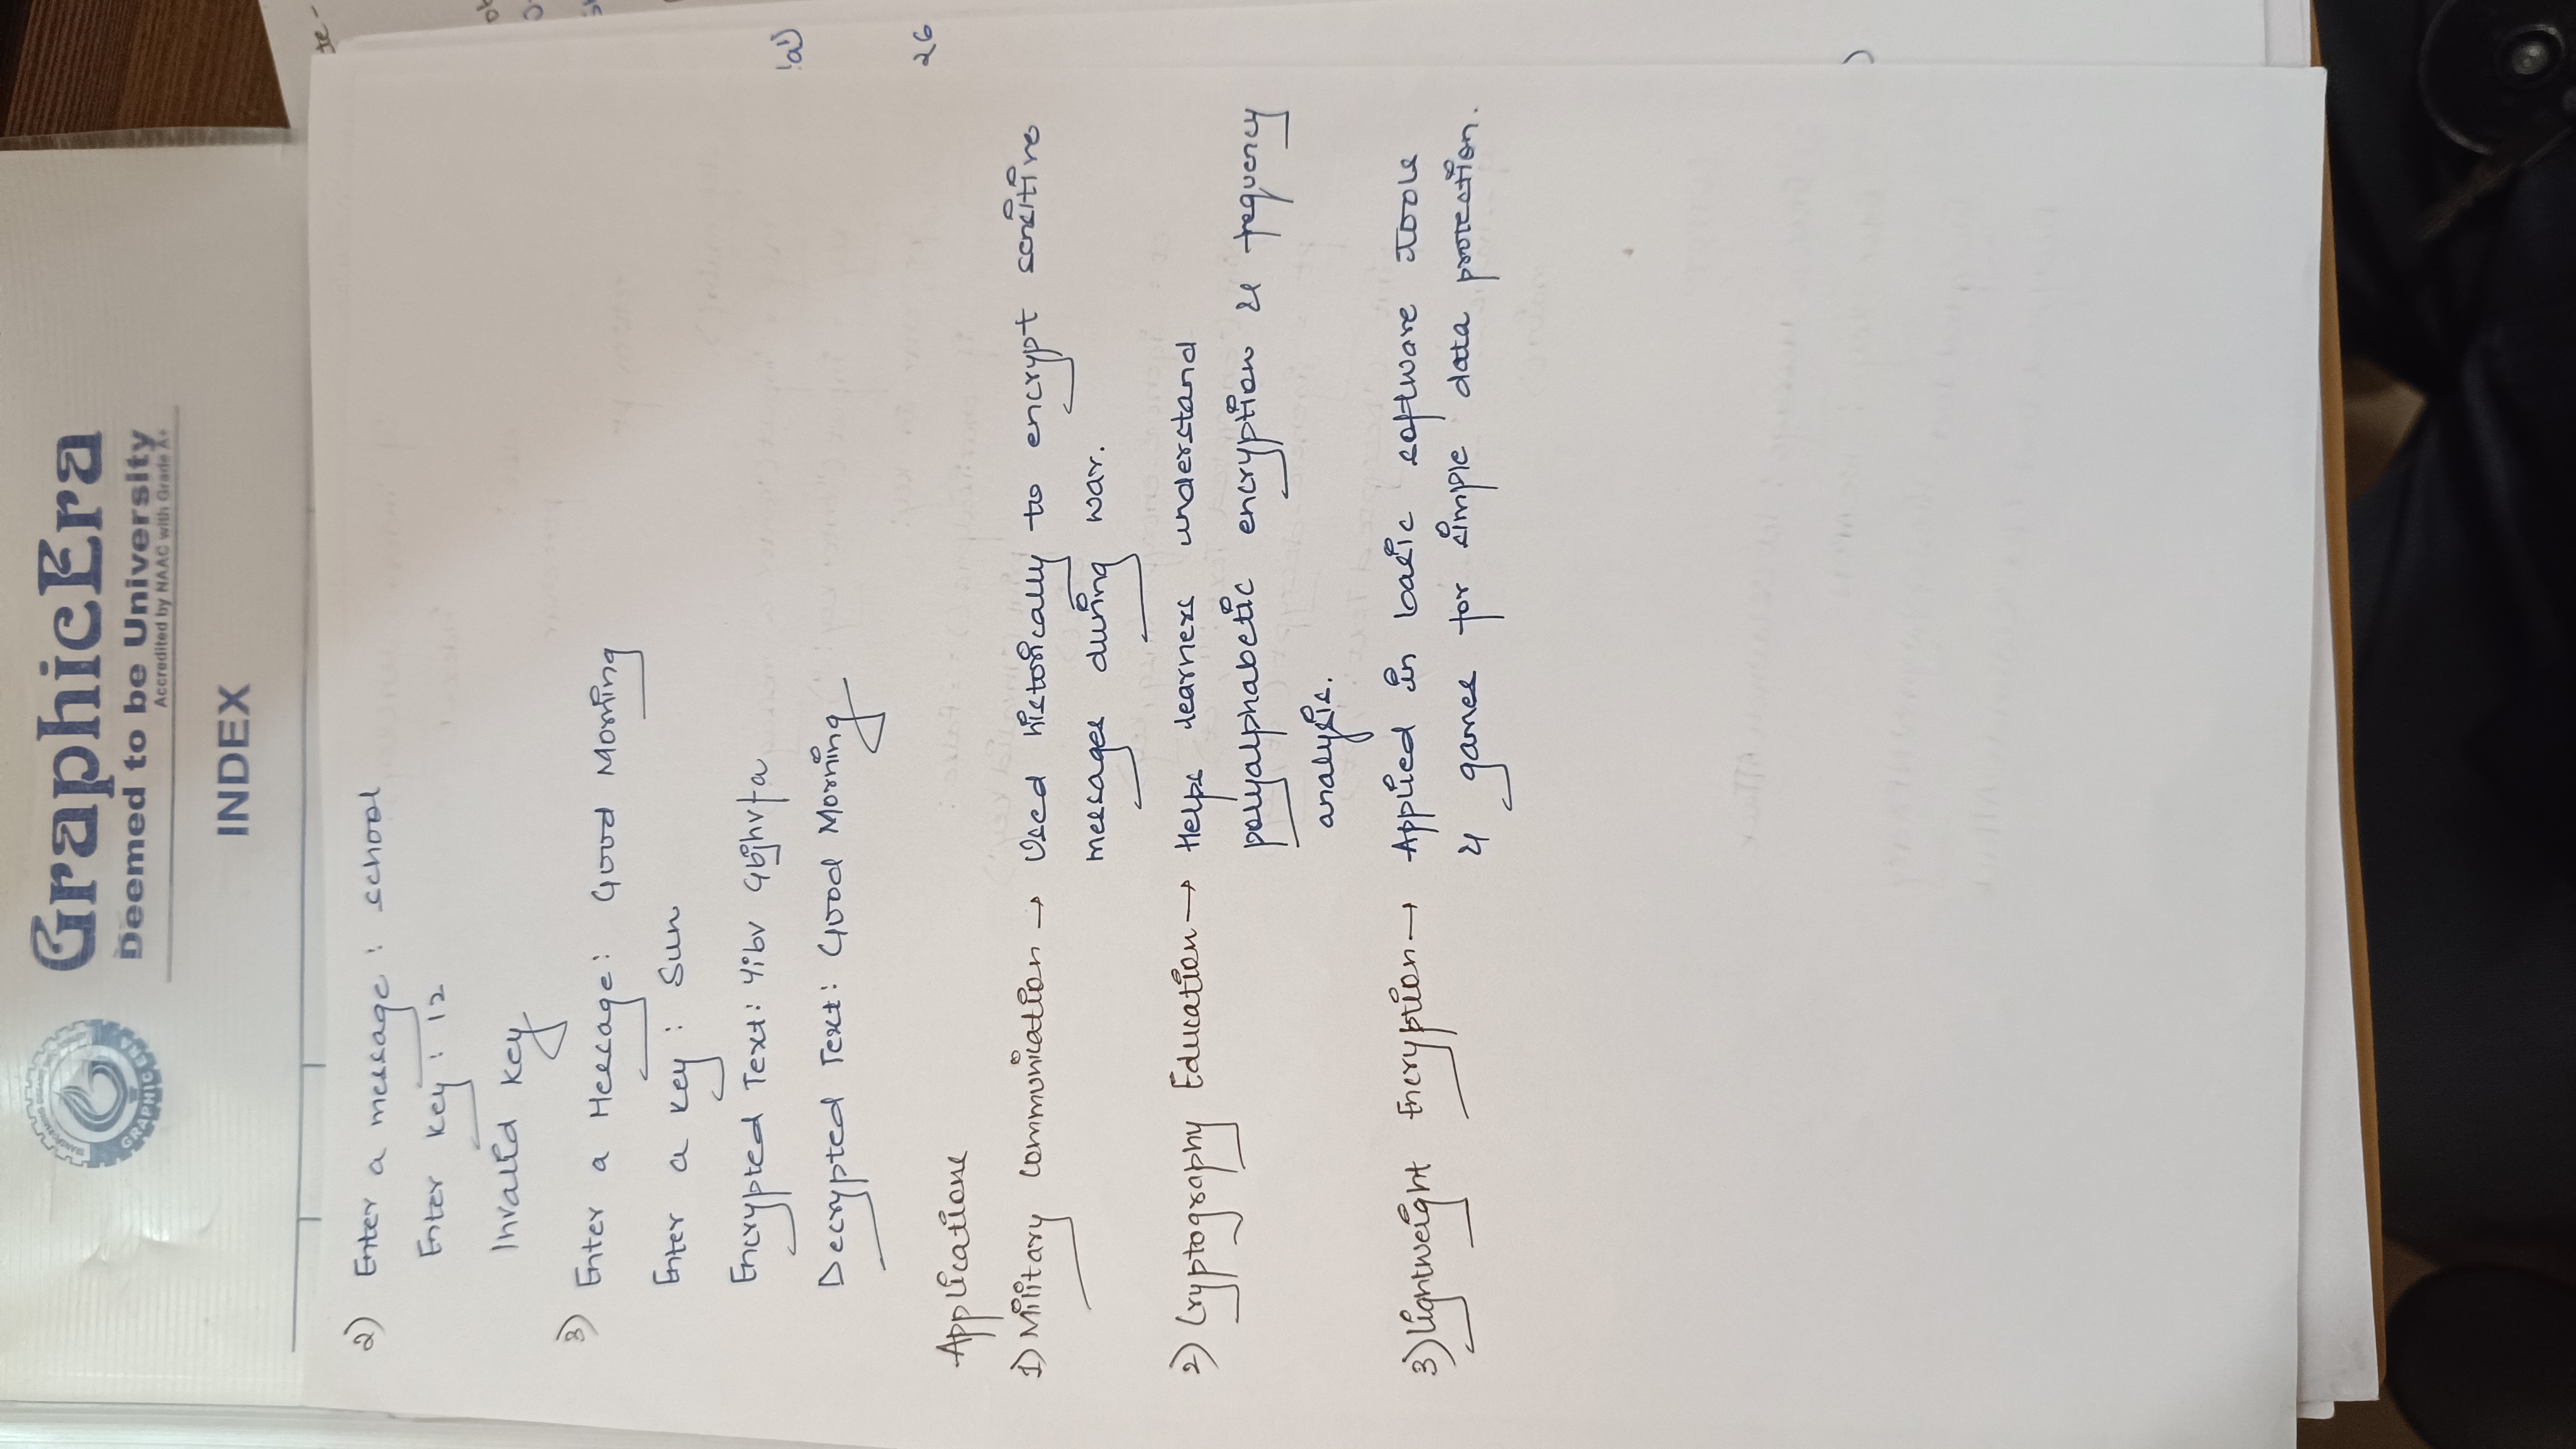 GraphicEra
Deemed to be University
Accredited by NAAC with Grade A+
INDEX
2) Enter a message : school
Enter key : 12
Invalid key
3) Enter a Message : Good Morning
Enter a key : Sun
Encrypted Text : Yibv Gbjhvfa
Decrypted Text : Good Morning
Applications
1) Military Communication → Used historically to encrypt sensitive
messages during war.
2) Cryptography Education → Helps learners understand
polyalphabetic encryption & frequency
analysis.
3) Lightweight Encryption → Applied in basic software tools
& games for simple data protection.
26